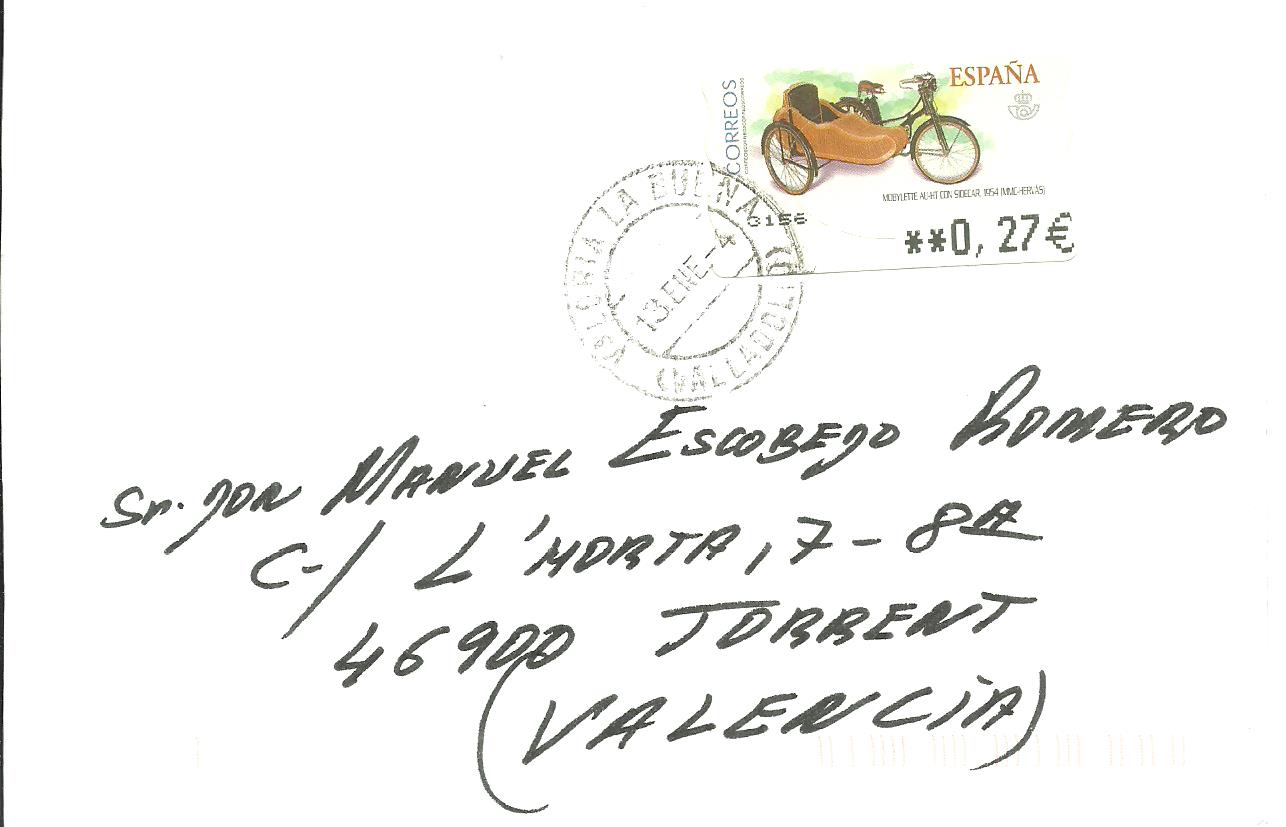 CORREOS
ESPAÑA
MOBYLETTE AU-HT CON SIDECAR, 1954 (MMC-HERVÁS)
3156
**0,27€
VALORIA LA BUENA
13.ENE.-4
(VALLADOLID)
Sr. JON MANUEL ESCOBEJO ROMERO
C-/ L'HORTA, 7 - 8ª
46900 TORRENT
(VALENCIA)